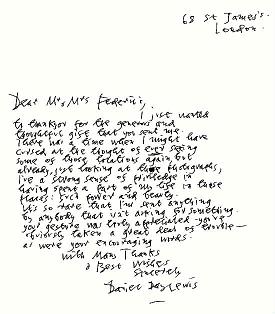 68 St James's
London.
Dear Mr & Mrs Federici,
I just wanted
to thank you for the generous and
thoughtful gift that you sent me.
There was a time when I might have
cursed at the thought of ever seeing
some of those locations again, but
already, just looking at those photographs,
I've a strong sense of privilege in
having spent a part of my life in those
places: their power and beauty.
It's so rare that I'm sent anything
by anybody that isn't asking for something.
Your gesture was truly appreciated - you've
obviously taken a great deal of trouble -
as were your encouraging words.
With Many Thanks
& Best Wishes
Sincerely
Daniel Day Lewis